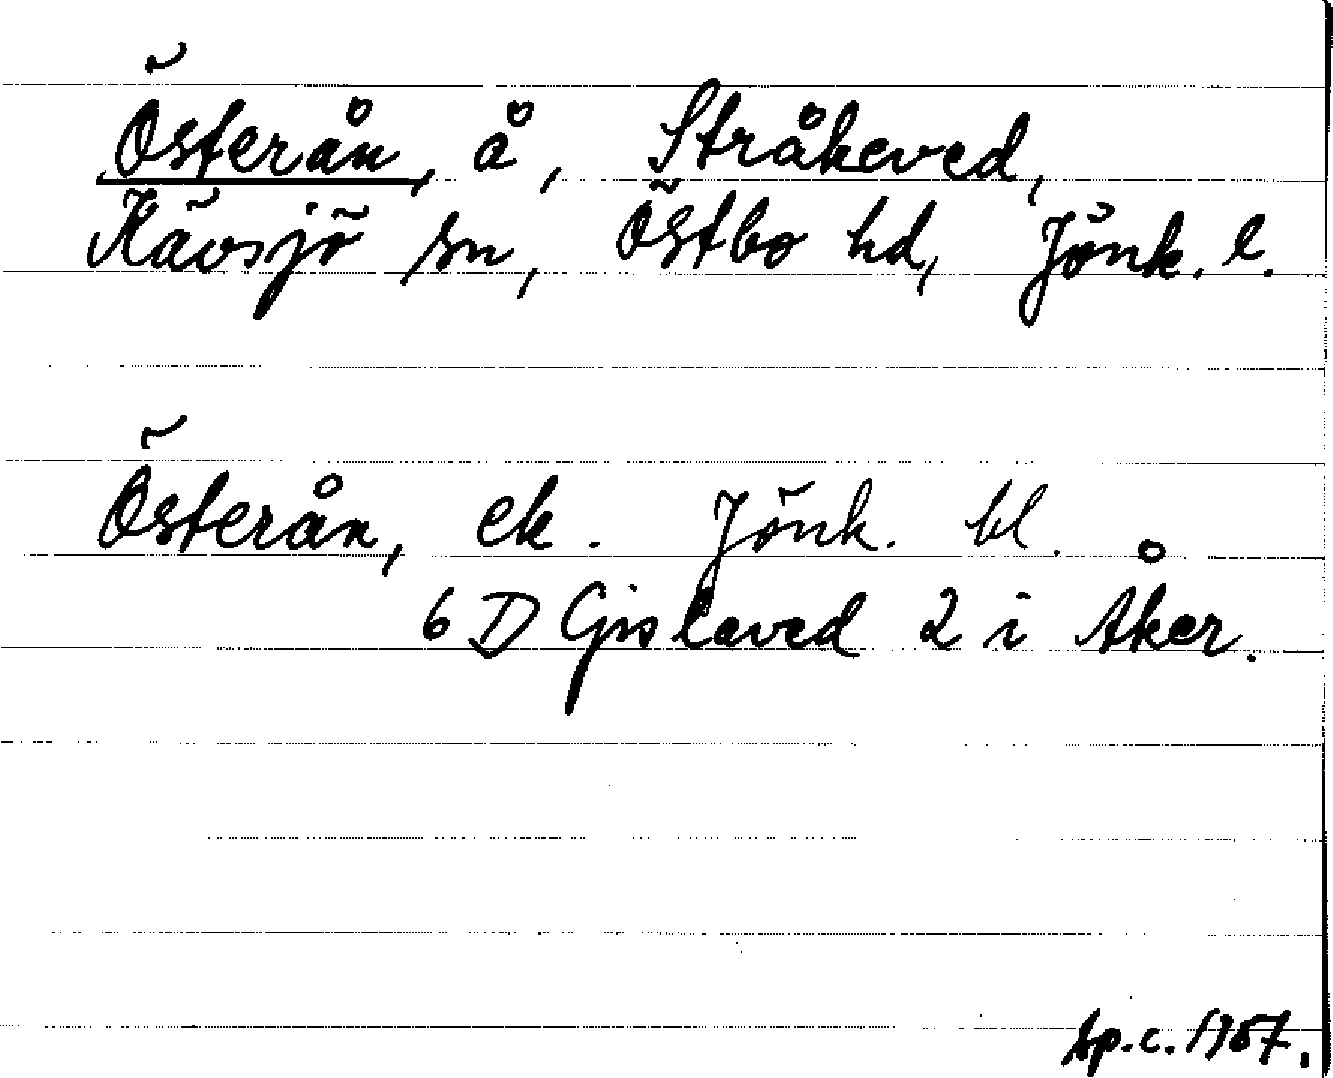 Österån, å, Stråkeved,
Kävsjö sn, Östbo hd, Jönk. l.
Österån, ek. Jönk. bl.
6 D Gislaved 2 i Åker.
Sp.c. 1957.